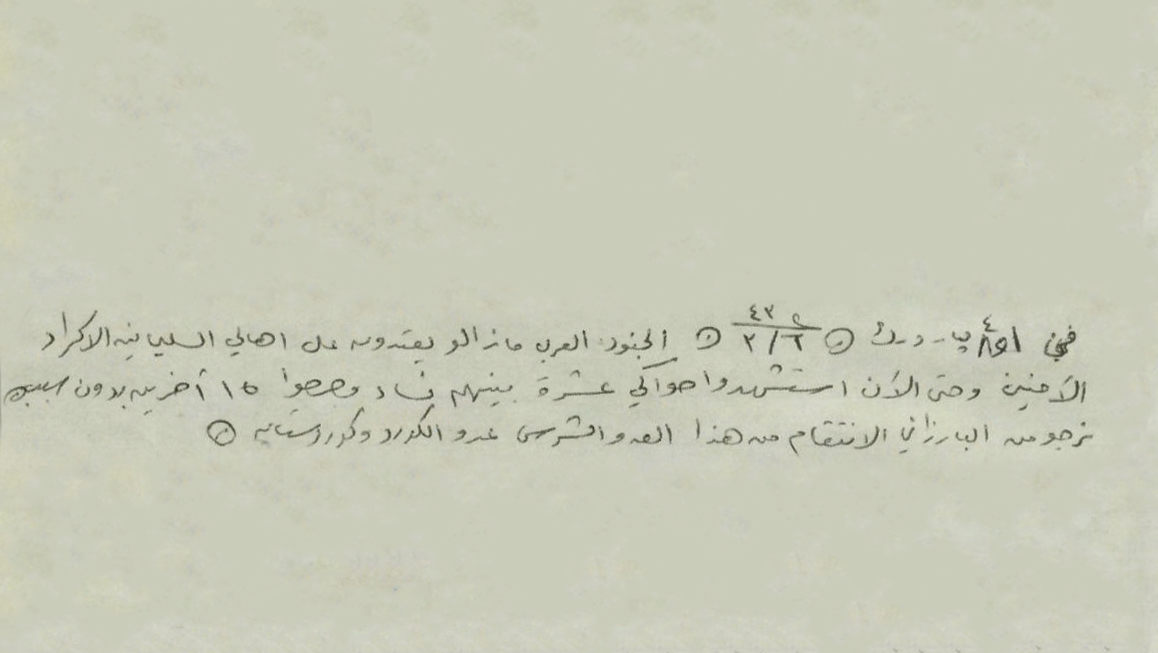 الجنود العرب مازالو يعتدون على اهالي السليمانيه الاكراد
الآمنين وحتى الآن استشهدوا حوالي عشرة بينهم نساء وجرحوا ١٥ آخرين بدون سبب
نرجو من البارزاني الانتقام من هذا العدو الشرس عدو الكورد وكوردستان